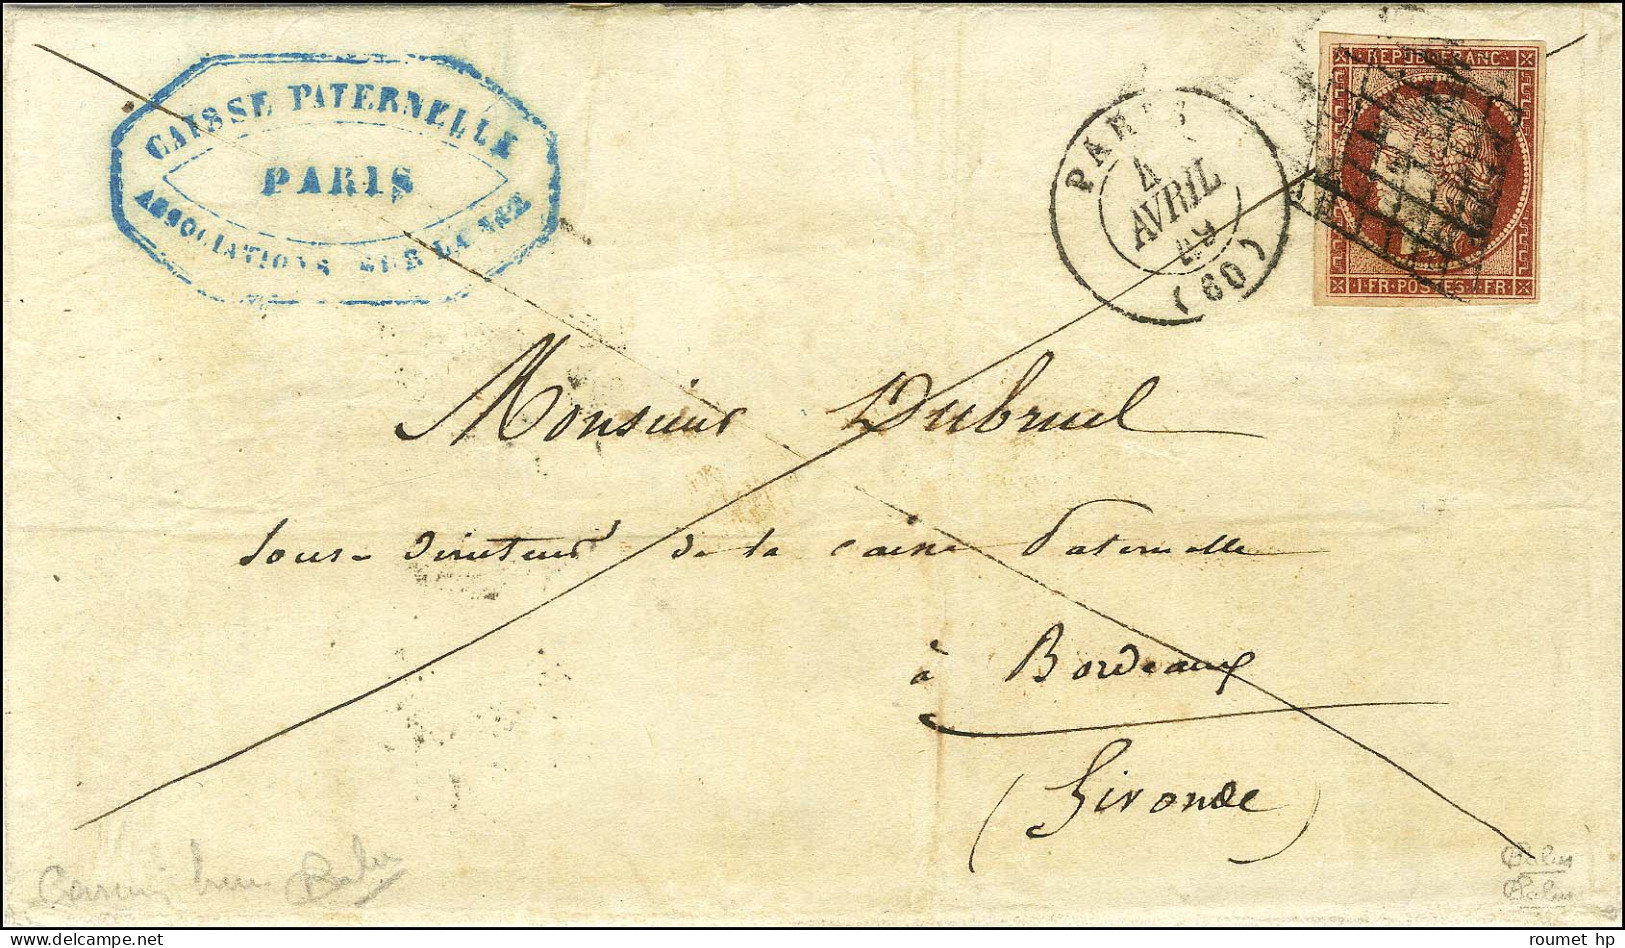 CAISSE PATERNELLE
PARIS
ASSOCIATIONS SUR LA VIE
PARIS
4
AVRIL
49
(60)
REPUB FRANC
1 FR POSTES 1 FR
Monsieur Dubruel
Sous-Directeur de la Caisse Paternelle
à Bordeaux
(Gironde)
Calves
Calves
roumet hp